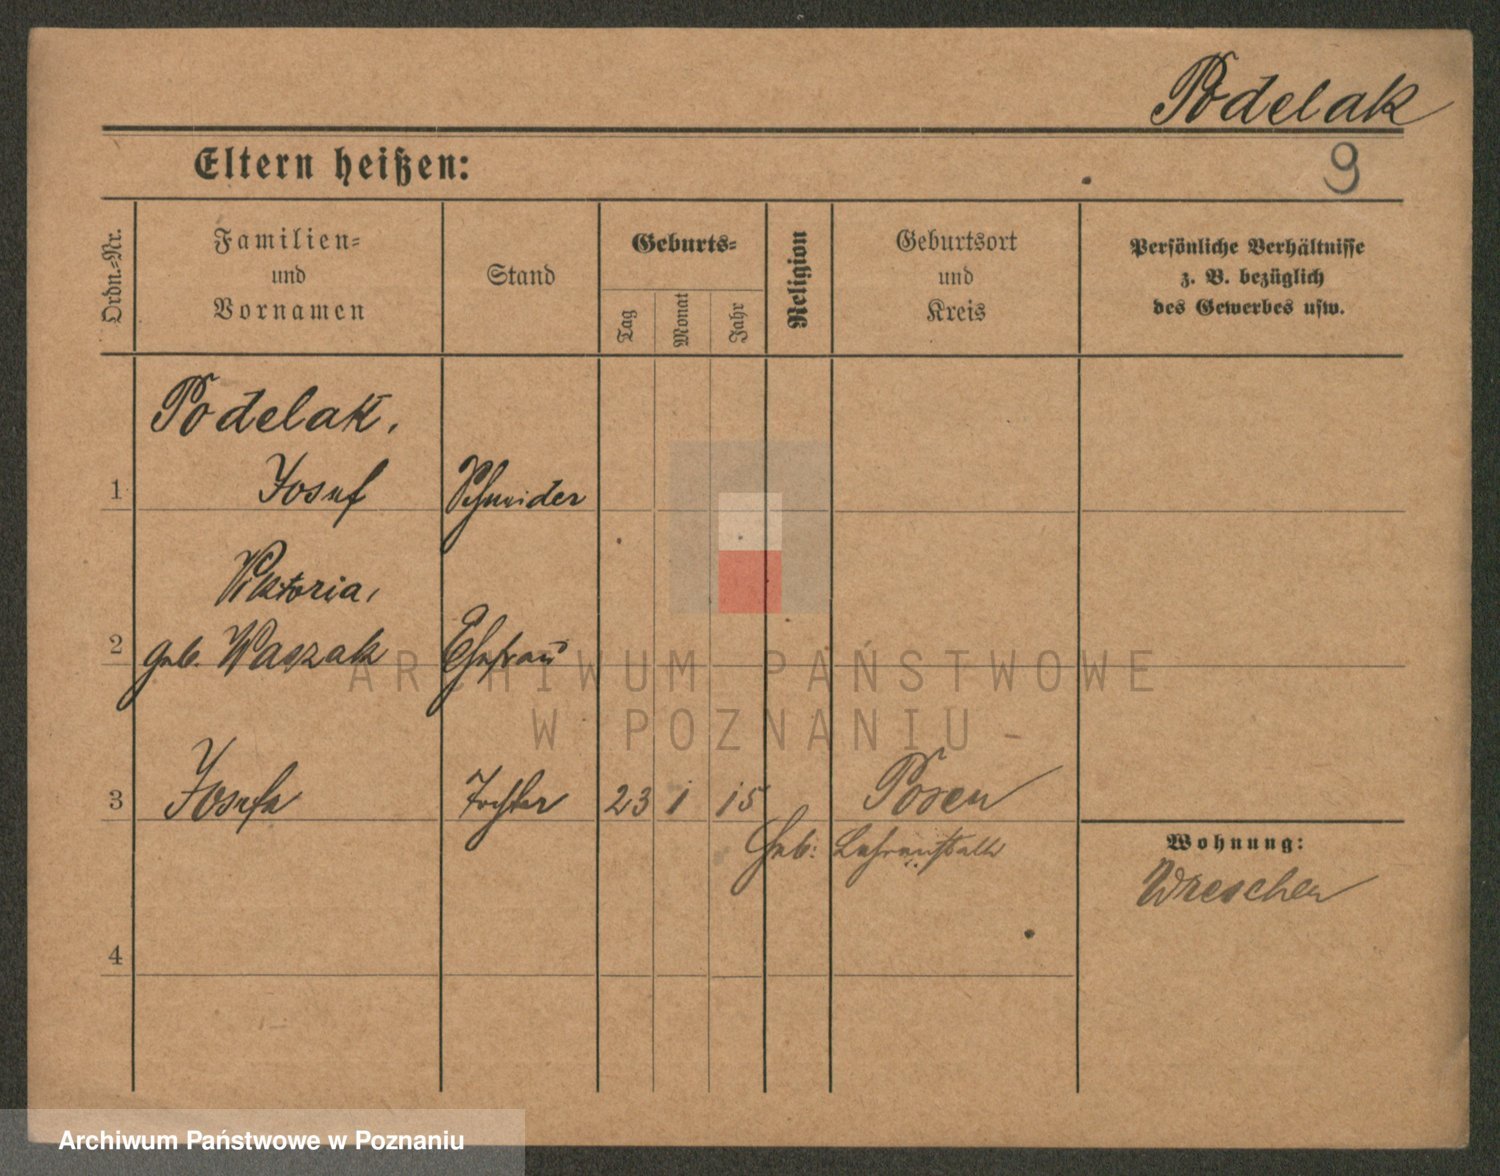 Podelak
Eltern heißen:
9
Ordn.-Nr.
Familien-
und
Vornamen
Stand
Geburts-
Tag
Monat
Jahr
Religion
Geburtsort
und
Kreis
Persönliche Verhältnisse
z. B. bezüglich
des Gewerbes usw.
Podelak,
1 Josef Schneider
Viktoria,
2 geb. Waszak Ehefrau
ARCHIWUM PAŃSTWOWE
W POZNANIU
3 Josefa Tochter 23 1 15 Posen
Heb. Lehranstalt
Wohnung:
Wreschen
4
Archiwum Państwowe w Poznaniu